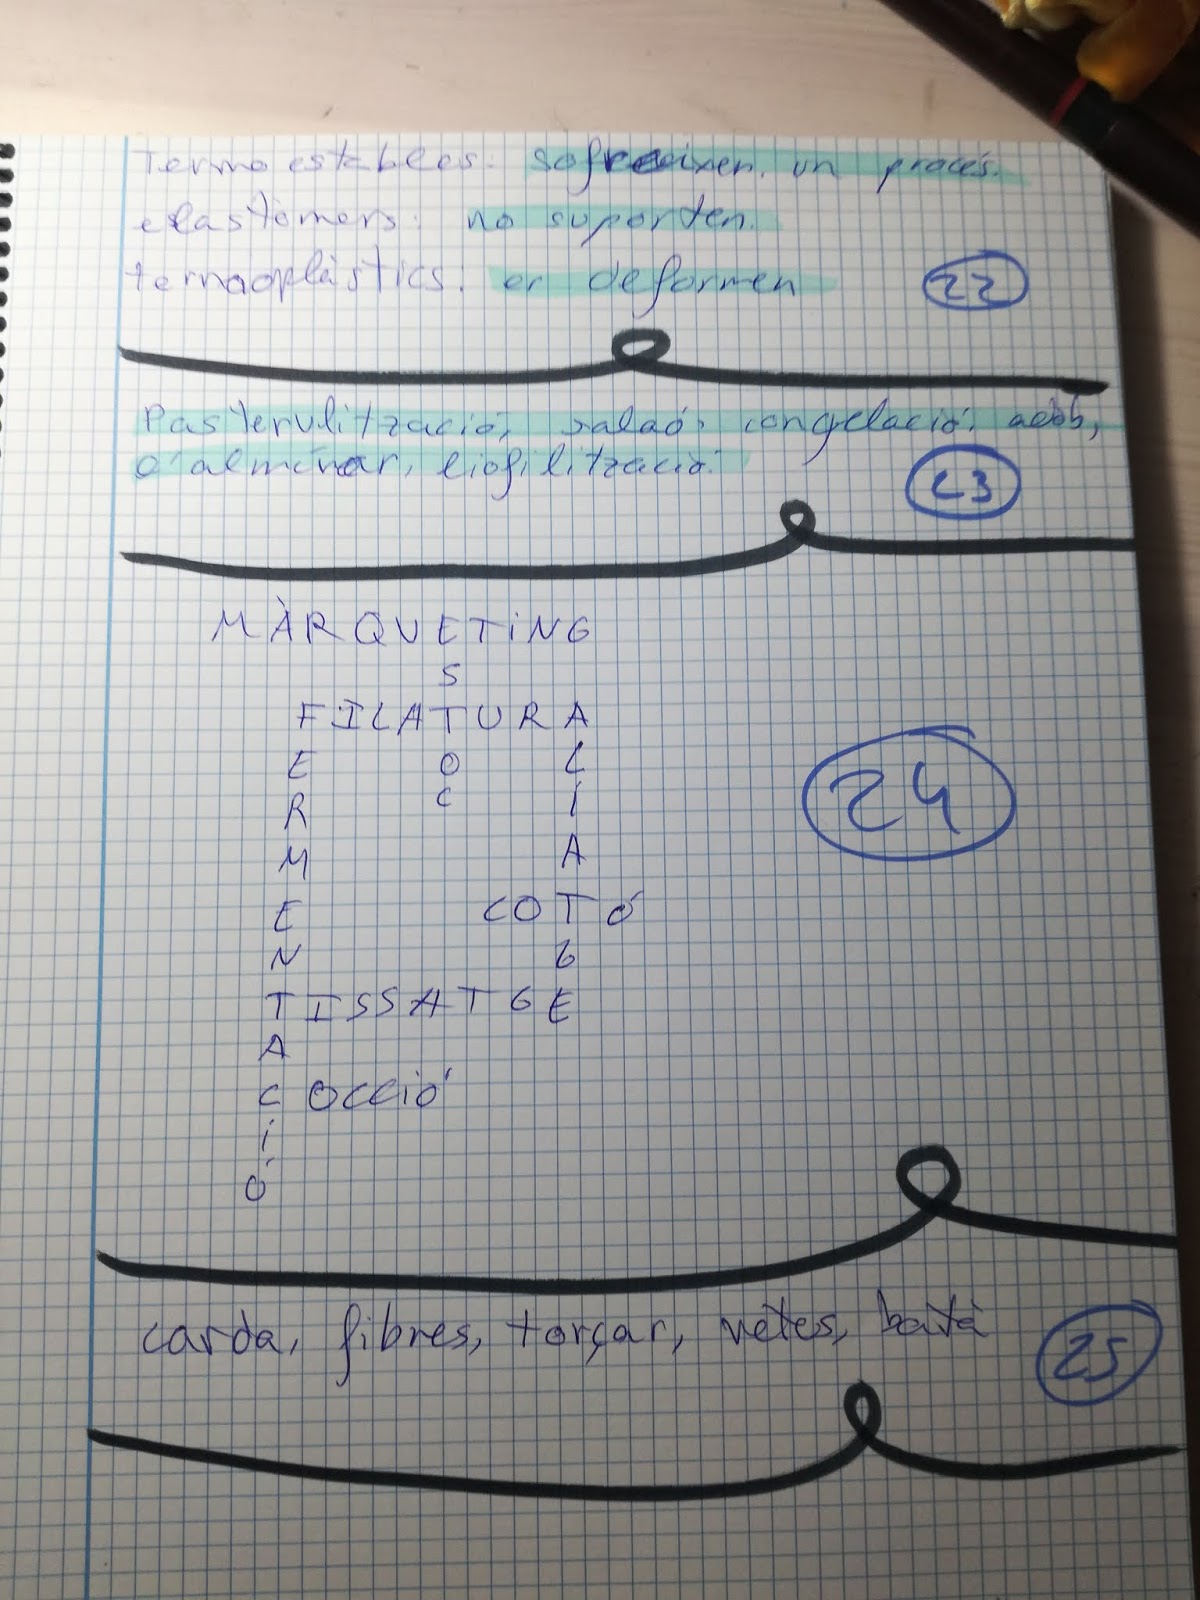 Termo estables: sofreeixen un procés.
elastòmers: no suporten.
termoplàstics: er deformen
22
Pasterulització, salaó, congelació, adob,
d'alminar, liofilització.
23
MÀRQUETING
S
FILATURA
E O L
R C I
M A
E COTÓ
N G
TISSATGE
A
COCCIÓ
I
Ó
24
carda, fibres, torçar, vetes, batà
25